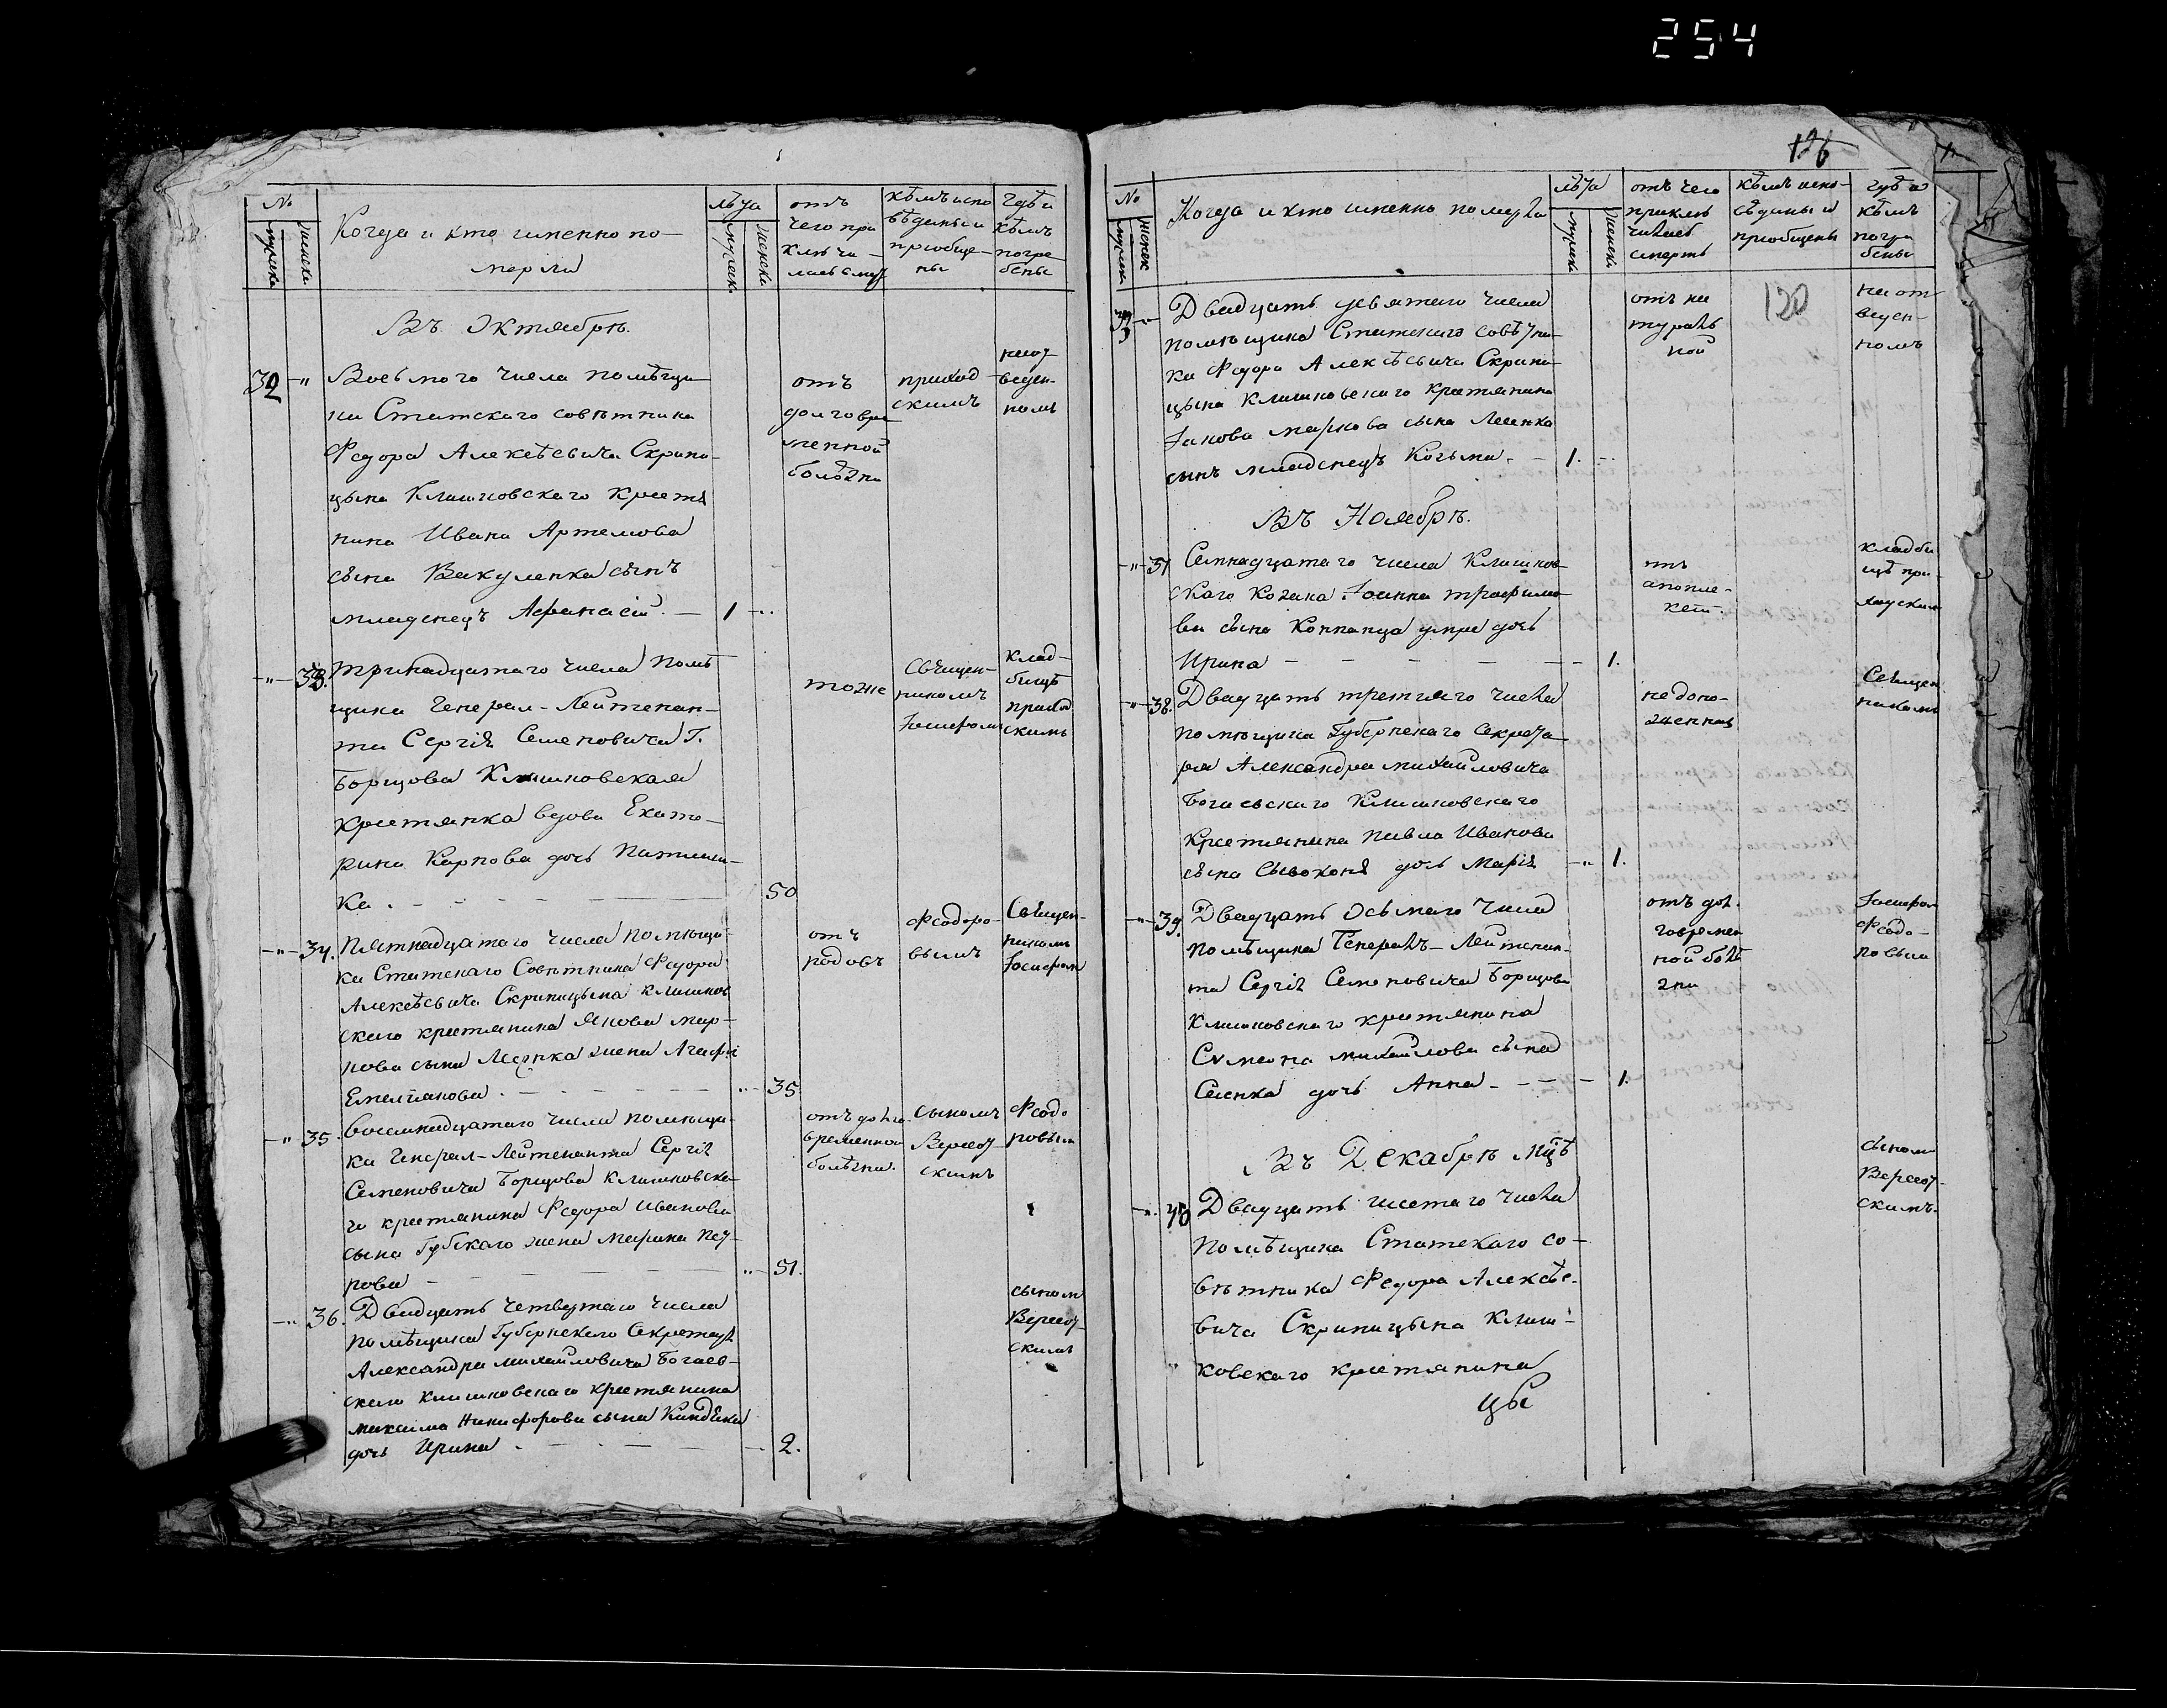 254
126
№
мужеск
женск
Когда и кто именно по-
мерли
лѣта
мужеск
женски
отъ
чего при
ключи-
лась смер
кѣмъ испо
вѣданы и
приобще-
ны
гдѣ и
кѣмъ
погре
бены
Въ Октябрѣ.
32 -"
Восьмого числа помѣщи-
ка Статскаго совѣтника
Федора Алексѣевича Скрипи-
цына Клишковскаго крестя
нина Ивана Артемова
сына Вакуленка сынъ
младенецъ Афанасій. — 1
отъ
долговре
менной
болѣзни
приход
скимъ
на от
веден-
номъ
-"- 33.
тринадцатаго числа помѣ
щика Генерал-Лейтенан-
та Сергія Семеновича Г.
Борщова Клишковская
крестянка вдова Екате-
рина Карпова дочь
ка. - - - 50
тоже
Священ-
никомъ
Іосифомъ
клад-
бищѣ
приход
скимъ
-"- 34.
Пятнадцатаго числа помѣщи-
ка Статскаго Совѣтника Федора
Алексѣевича Скрипицына клишков
скаго крестянина Якова мар-
кова сына Лесенка жена Агафи
Емелianова. - - - 35.
отъ
родовъ
Феодоро-
вымъ
Священ-
никомъ
Іосифом
-" 35.
восемнадцатаго числа помѣщи-
ка Генерал-Лейтенанта Сергія
Семеновича Борщова Клишковска-
го крестянина Федора Иванова
сына Губскаго жена Марина Пет-
рова - - - 51.
отъ долго
временной
болѣзни.
сыномъ
Версот-
скимъ
Феодо
ровым
-" 36.
Двадцать четвертаго числа
помѣщика Губернскаго Секретар
Александра михайловича Богаев-
скаго клишковскаго крестянина
максима Никифорова сына
дочь Ирина. - - - 2.
сыном
Версот-
скимъ
№
мужеск
женск
Когда и кто именно померли
лѣта
мужеск
женски
отъ чего
приклю
чилась
смерть
кѣмъ испо-
вѣданы и
приобщены
гдѣ и
кѣмъ
погре
бены
33 -"-
Двадцать девятаго числа
помѣщика Статскаго совѣтни-
ка Федора Алексѣевича Скрипи-
цына Клишковскаго крестянина
Іакова маркова сына Лесенка
сынъ младенецъ Козьма. - 1.
отъ на
тураль
ной
120
на от
веден-
номъ
Въ Ноябрѣ.
-"- 37
Семнадцатаго числа Клишков-
скаго козака Іоанна трофимо-
ва сына Коппанца умре дочь
Ирина - - - 1.
отъ
апопле-
ксіи.
кладби
щѣ при-
ходским
-"- 38.
Двадцать третяго числа
помѣщика Губернскаго Секрета-
ря Александра михайловича
Богаевскаго Клишковскаго
крестянина павла Иванова
сына Сывоконя дочь Марія -" 1.
недоно-
шенная
Священ
никомъ
-"- 39.
Двадцать осьмаго числа
помѣщика Генералъ-Лейтенан-
та Сергія Семеновича Борщова
Клишковскаго крестянина
Сѵмеона михайлова сына
Сеенка дочь Анна - - - 1.
отъ дол.
говремен
ной болѣ
зни
Іосифом
Феодо-
ровым
Въ Декабрѣ мцѣ
-". 40
Двадцать шестаго числа
Помѣщика Статскаго со-
вѣтника Федора Алексѣе-
вича Скрипицына Клиш-
ковскаго крестянина
сыном
Версот-
скимъ.